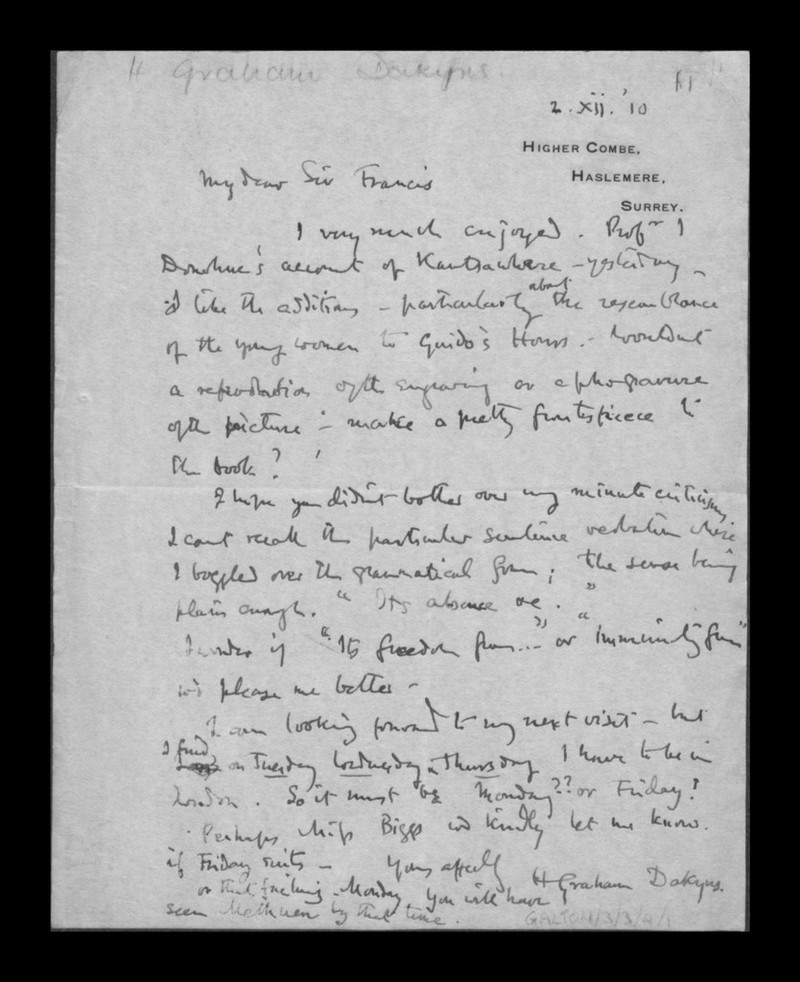 H Graham Dakyns.
2.xii.'10
HIGHER COMBE,
HASLEMERE,
SURREY.
My dear Sir Francis
I very much enjoyed. Profr I
Donohue's account of Kantsawhere - yesterday -
I like the additions - particularly about the resemblance
of the young women to Guido's Hours. - Wouldnt
a reproduction of the engraving or a photogravure
of the picture - make a pretty frontispiece to
the book?
I hope you didn't bother over my minute criticism,
I cant recall the particular sentence verbatim where
I boggled over the grammatical form; the sense being
plain enough. "Its absence
I wonder if "Its freedom from..." or "immunity from"
wd please me better -
I am looking forward to my next visit - but
I find on Tuesday Wednesday & Thursday I have to be in
London. So it must be Monday?? or Friday?
Perhaps Miss Biggs wd kindly let me know.
if Friday suits - Yours affectly H Graham Dakyns.
or that failing Monday You will have
seen Methuen by that time.
GALTON/3/3/4/1